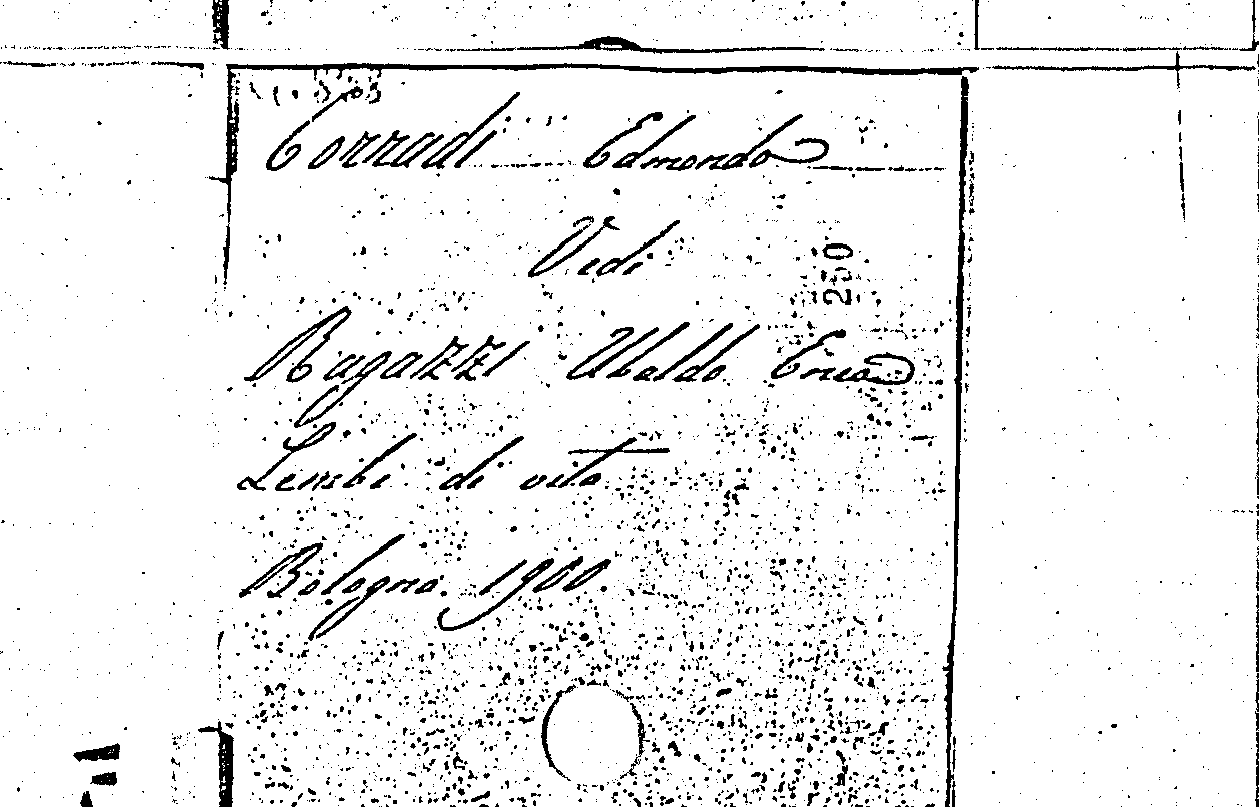 Corradi Edmondo
Vedi
250
Ragazzi Ubaldo Enea
Lembi di vita
Bologna. 1900.